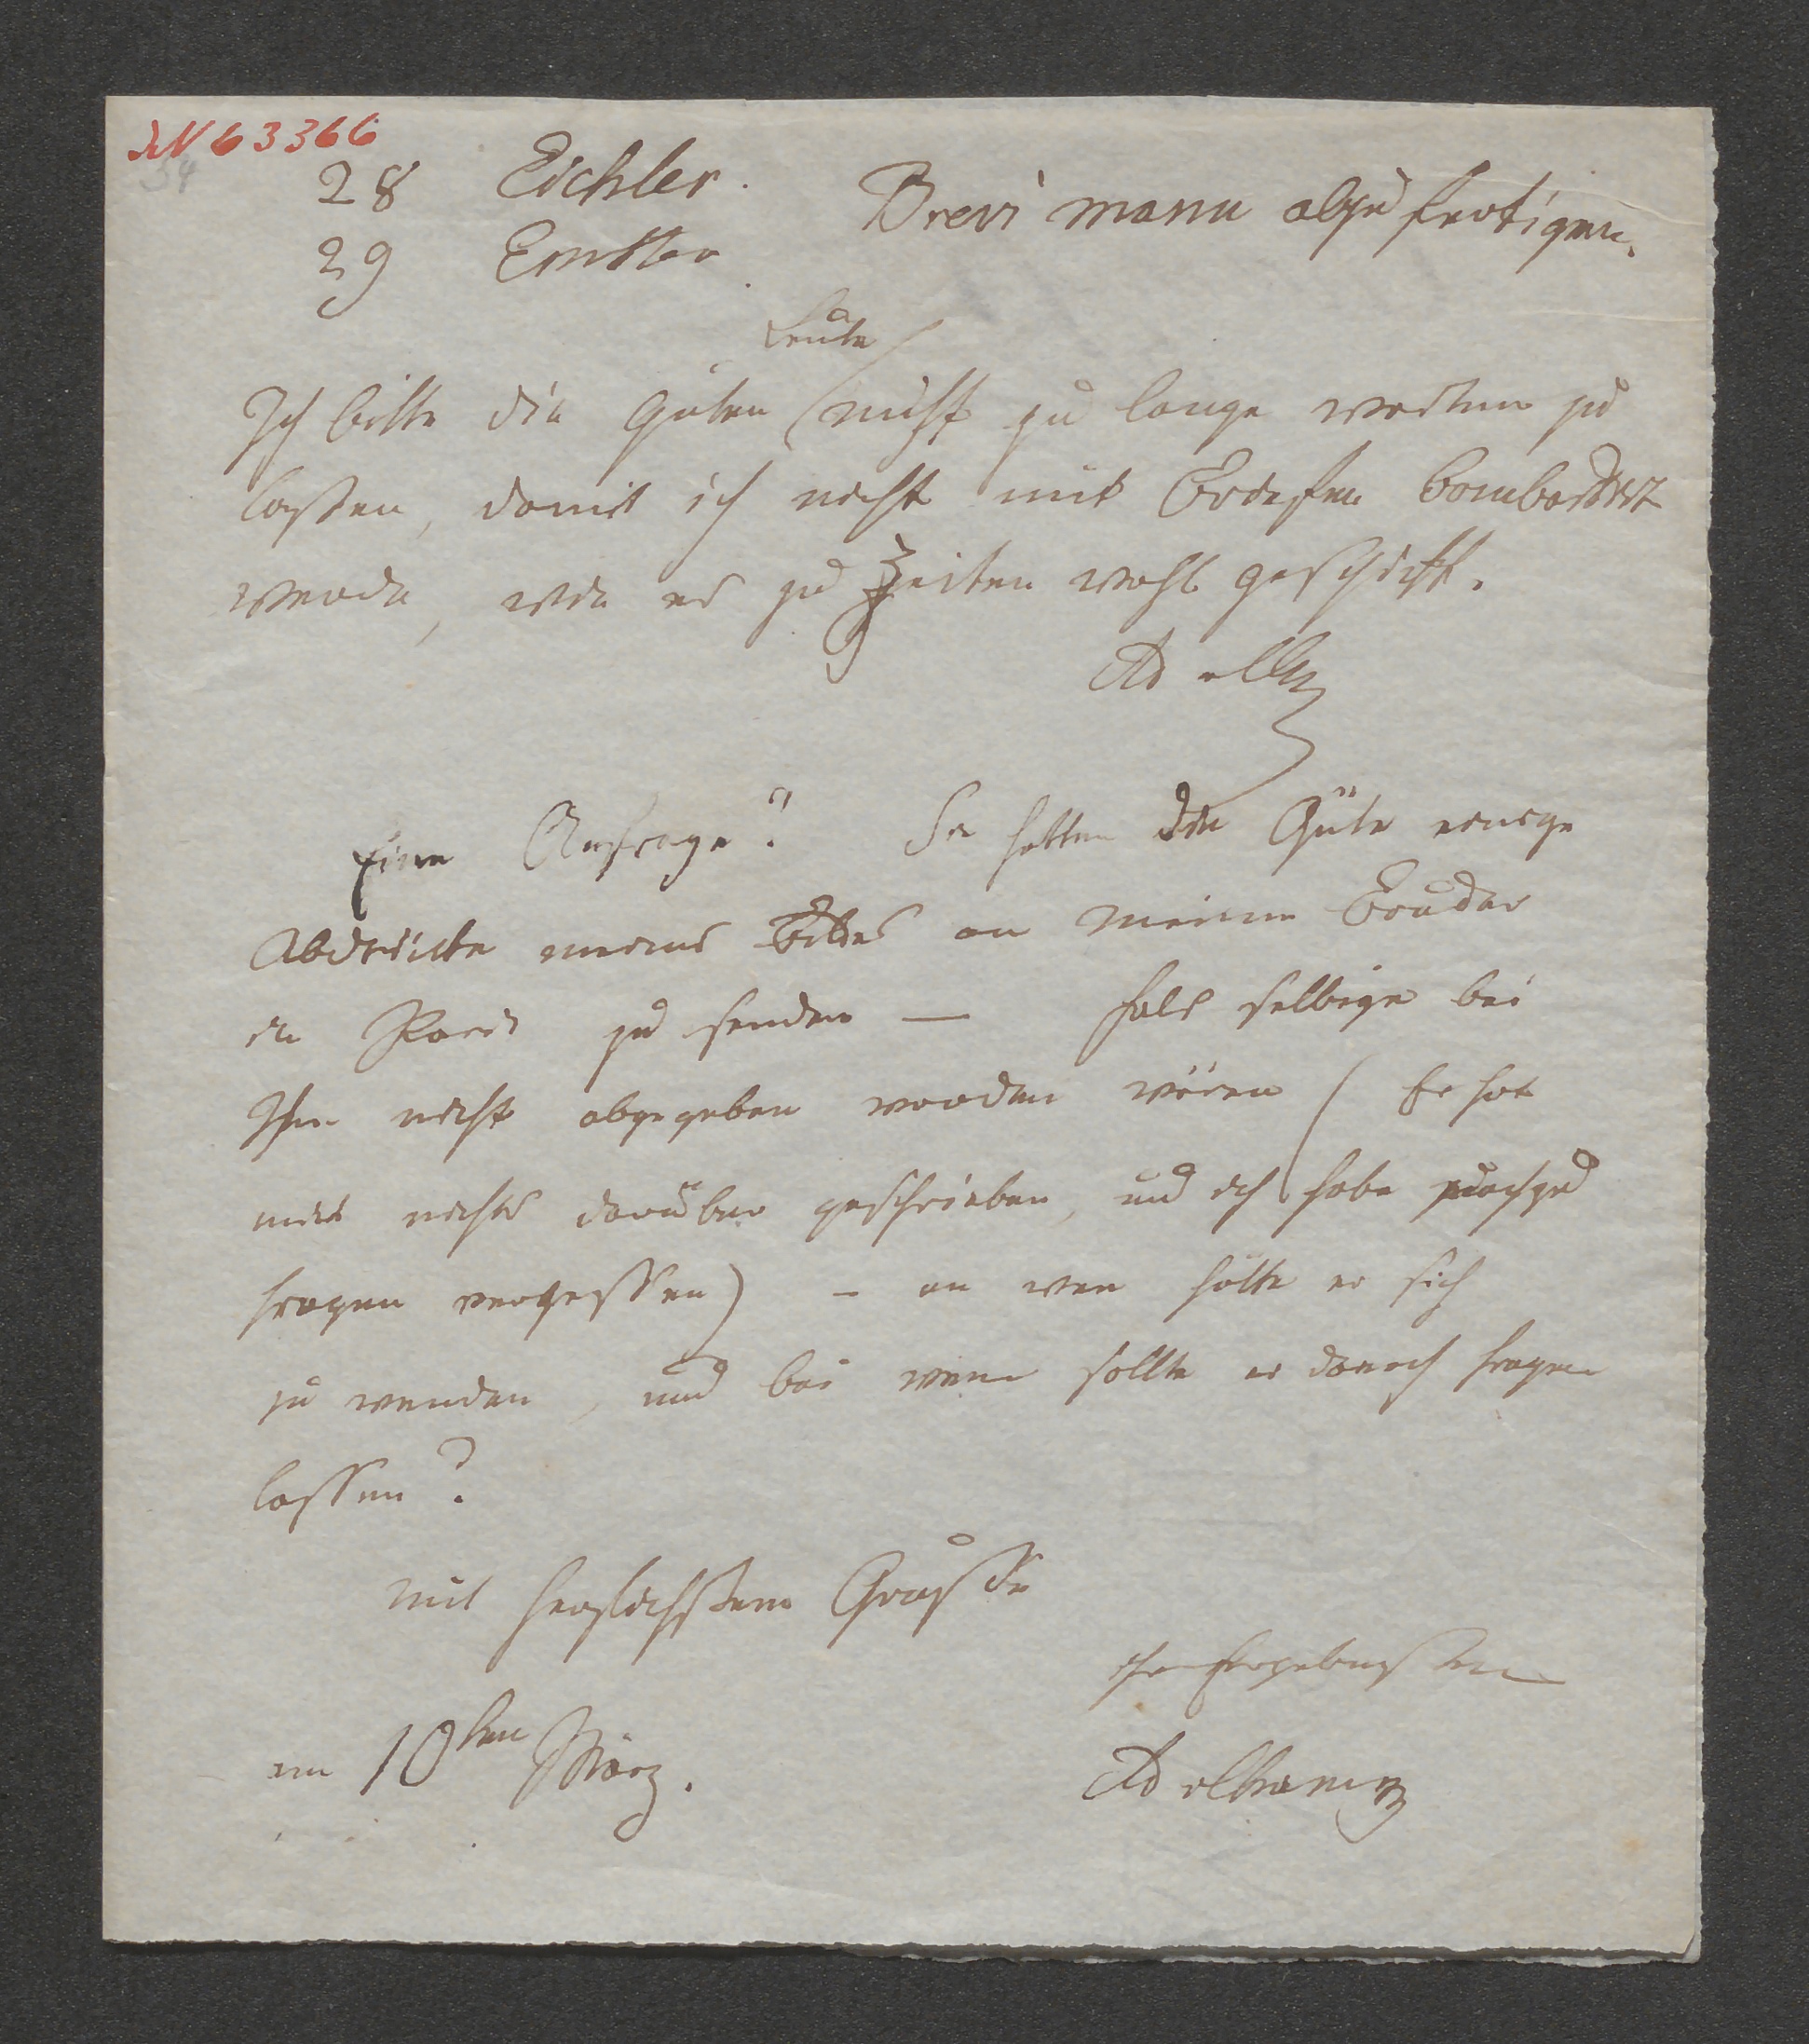 N 63366
34
28 Eichler. Brevi manu abzufertigen.
29
Leute
Ich bitte die guten nicht zu lange warten zu
lassen, damit ich nicht mit Briefen bombardirt
werde, wie es zu Zeiten wohl geschieht.
Eine Anfrage? Sie hatten die Güte einige
Abdrücke meines Bildes an meinen Bruder
in Paris zu senden — Falls selbige bei
Ihm nicht abgegeben worden wären (Er hat
mir nichts darüber geschrieben, und ich habe nachzu
fragen vergessen) – an wen hätte er sich
zu wenden, und bei wem sollte er danach fragen
lassen?
mit herzlichstem Grusse
Ihr Ergebenster
am 10ten März.